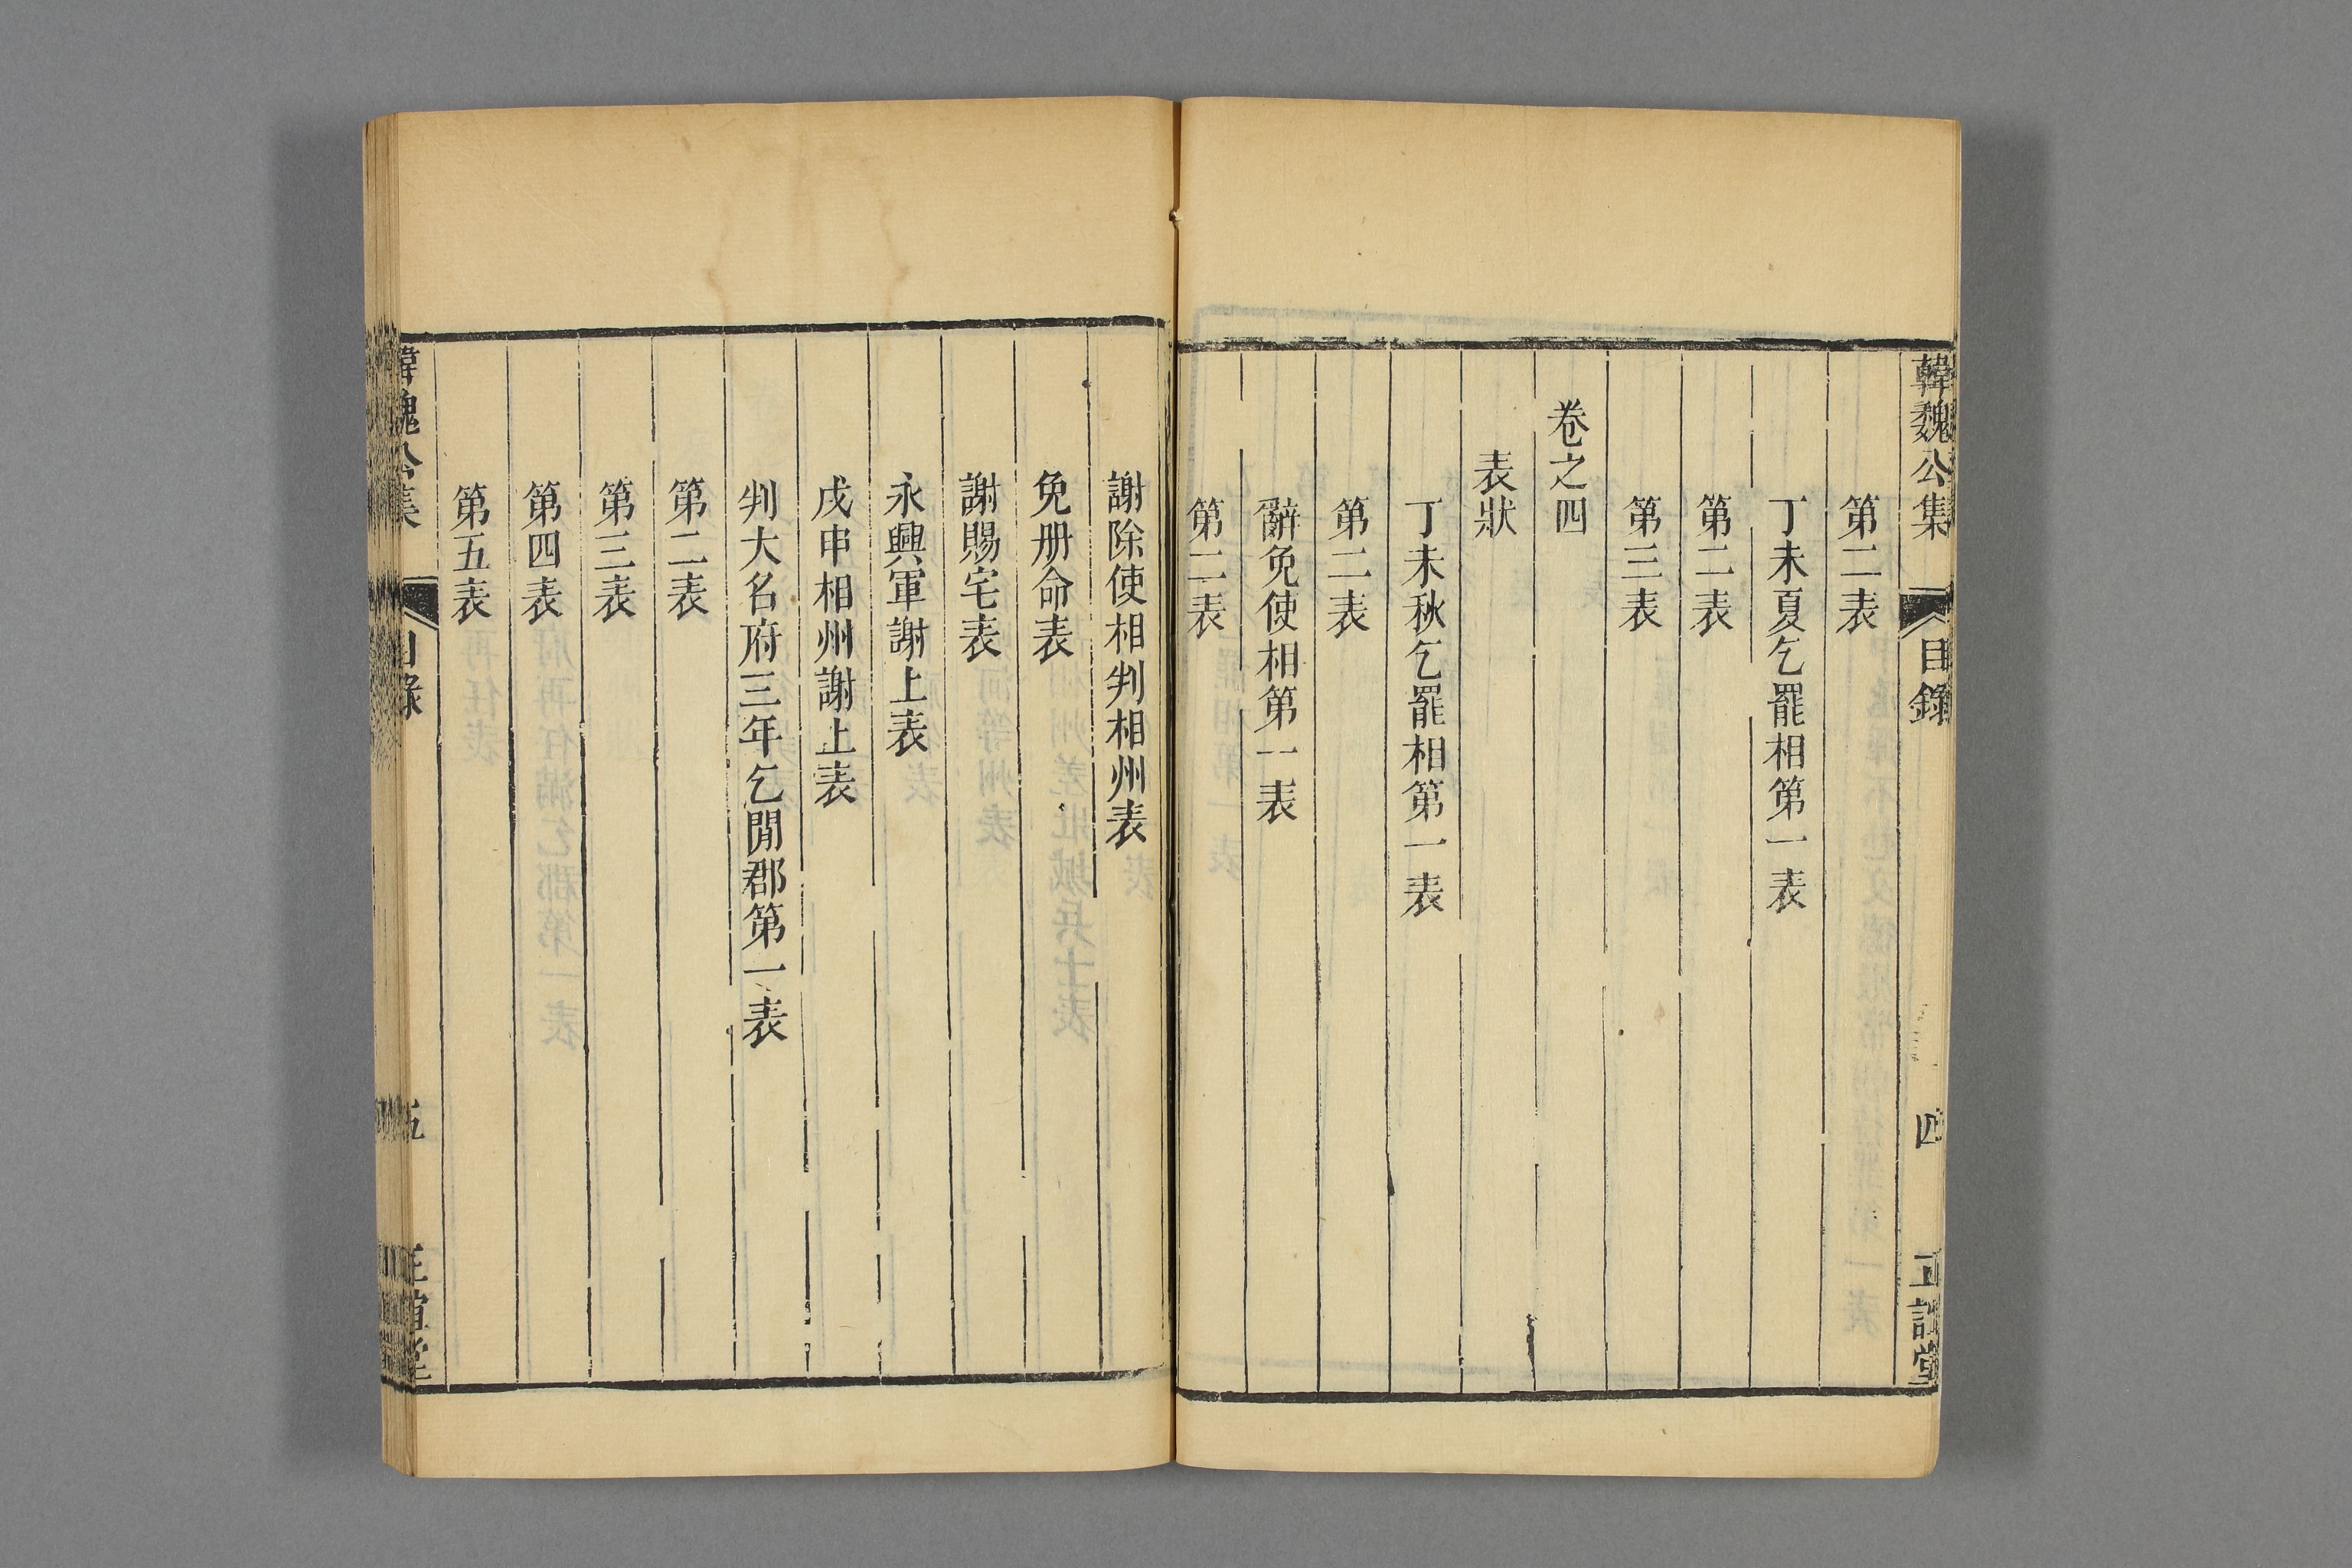 韓魏公集
目錄
四
正誼堂
第二表
丁未夏乞罷相第一表
第二表
第三表
卷之四
表狀
丁未秋乞罷相第一表
第二表
辭免使相第一表
第二表
謝除使相判相州表
免册命表
謝賜宅表
永興軍謝上表
戊申相州謝上表
判大名府三年乞閒郡第一表
第二表
第三表
第四表
第五表
韓魏公集
目錄
五
正誼堂